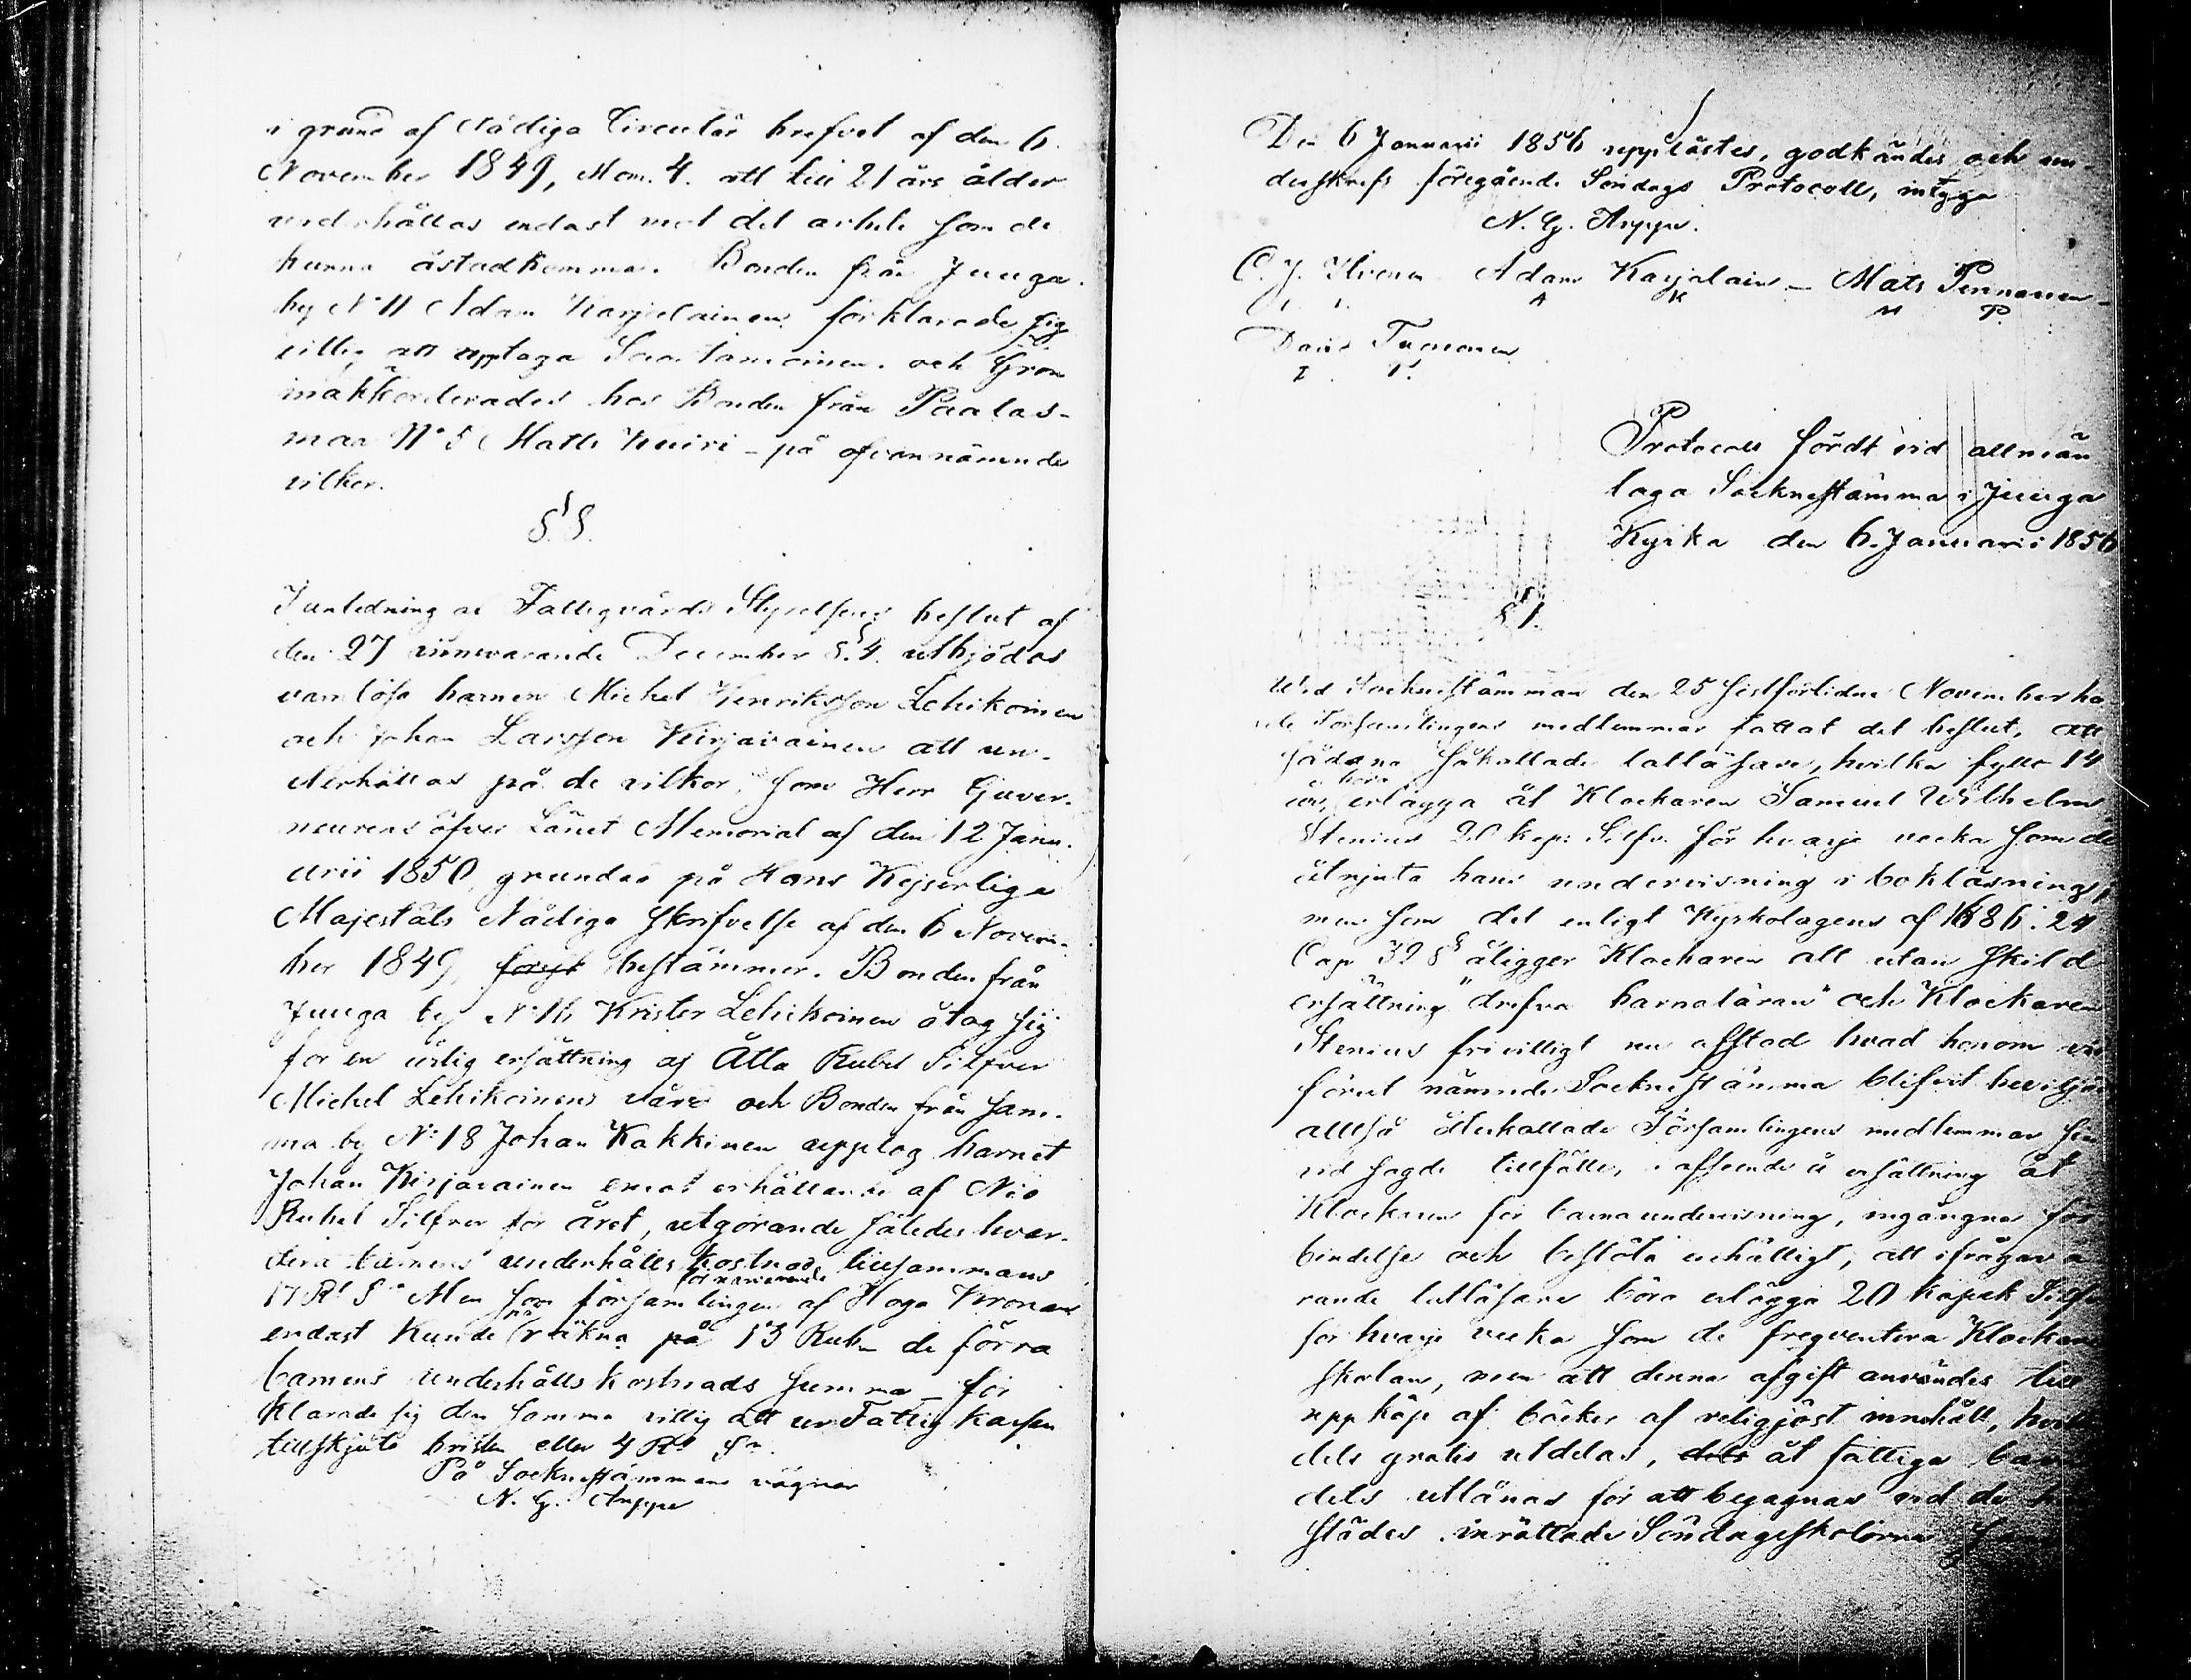 i grund af Nådiga Circulär brefvet af den 6.
November 1849, Mom. 4. att till 21 års ålder
underhållas endast mot det arbete som de
kunna åstadkomma. Bonden från Juuga
by N:o 11 Adam Karjalainen förklarade sig
villig att upptaga och Gron
inakkorderades hos Bonden från Paalas-
maa N:o 5 Matts Kuiri - på ofvannämnde
vilkor.
§. 8.
I anledning af Fattigvårds Styrelsens beslut af
den 27 innevarande December §. 4. utbjödos
vanlösa barnen Michel Henriksson Lehikoinen
och Johan Larsson Kirjavainen att un-
derhållas på de vilkor, som Herr Guver-
neurens öfver Länet Memorial af den 12 Janu-
arii 1850, grundad på Hans Kejserliga
Majestäts Nådiga Skrifvelse af den 6 Novem-
ber 1849, bestämmer. Bonden från
Juuga by N:o 16 Krister Lehikoinen åtog sig
for en årlig ersättning af Åtta Rubel Silfver
Michel Lehikoinens vård och Bonden från sam-
ma by N:o 18 Johan Kakkinen upptog barnet
Johan Kirjavainen emot erhållande af Nio
Rubel Silfver för året, utgörande således hvar-
dera barnens underhålls kostnad tillsammans
17 R:l S:r Men som församlingen för närvarande af Höga Kronan
endast kunde räkna på 13 Rub. de förra
barnens underhålls kostnads summa - för
klarade sig den samma villig att ur Fattig kassan
tillskjuta bristen eller 4 R:l S:r.
På Sockneståmmans vägnar
N. G. Arppe
Den 6 Januarii 1856 upplästes, godkändes och un-
derskrefs föregående Söndags Protocoll, intyga
N. G. Arppe.
C. J. Ilvonen Adam Karjalain - Mats Pennanen -
A K M P.
David Turunen
I T.
Protocoll fördt vid allmän
laga Sockneståmma i Juuga
Kyrka den 6. Januarii 1856
§ 1.
Wid Socknestämman den 25 sistförlidne November ha
de Församlingens medlemmar fattat det beslut, att
sådana såkallade lallåsare, hvilka fyllt 14
år, böra erlägga åt Klockaren Samuel Wilhelm
Stenius 20 kop: Silfv. för hvarje vecka som de
åtnjuta hans undervisning i bokläsning,
men som det enligt Kyrkolagens af 1686. 24
Cap 32 § åligger Klockaren att utan skild
ersättning "drifva barnaläran" och Klockaren
Stenius frivilligt nu afstod hvad honom vid
förut nämnde Sockneståmma blifvit beviljad
alltså återkallade Församlingens medlemmar sin
vid sagde tillfälle, i afseende å ersättning åt
Klockaren för barnaundervisning, ingångna för
bindelse och beslöto enhälligt, att ifrågava
rande lallåsare böra erlägga 20 kopek Silf
för hvarje vecka som de freqventera Klockare
skolan, men att denna afgift användes till
uppköp af böcker af religjöst innehåll, hvilka
dels gratis utdelas, dels åt fattiga barn
dels utlånas för att begagnas vid de
städes inrättade Söndagsskolorna